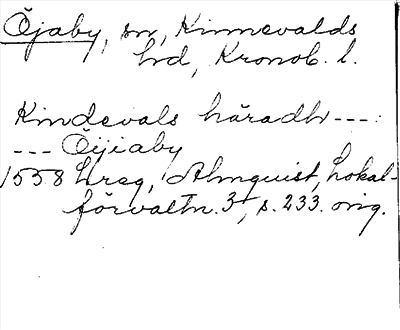 Öjaby, sn, Kinnevalds
hd, Kronob. l.
Kindevals häradh ---:
--- Öijaby
1558 hreg, Almquist, Lokal-
förvaltn. 3, s. 233. orig.